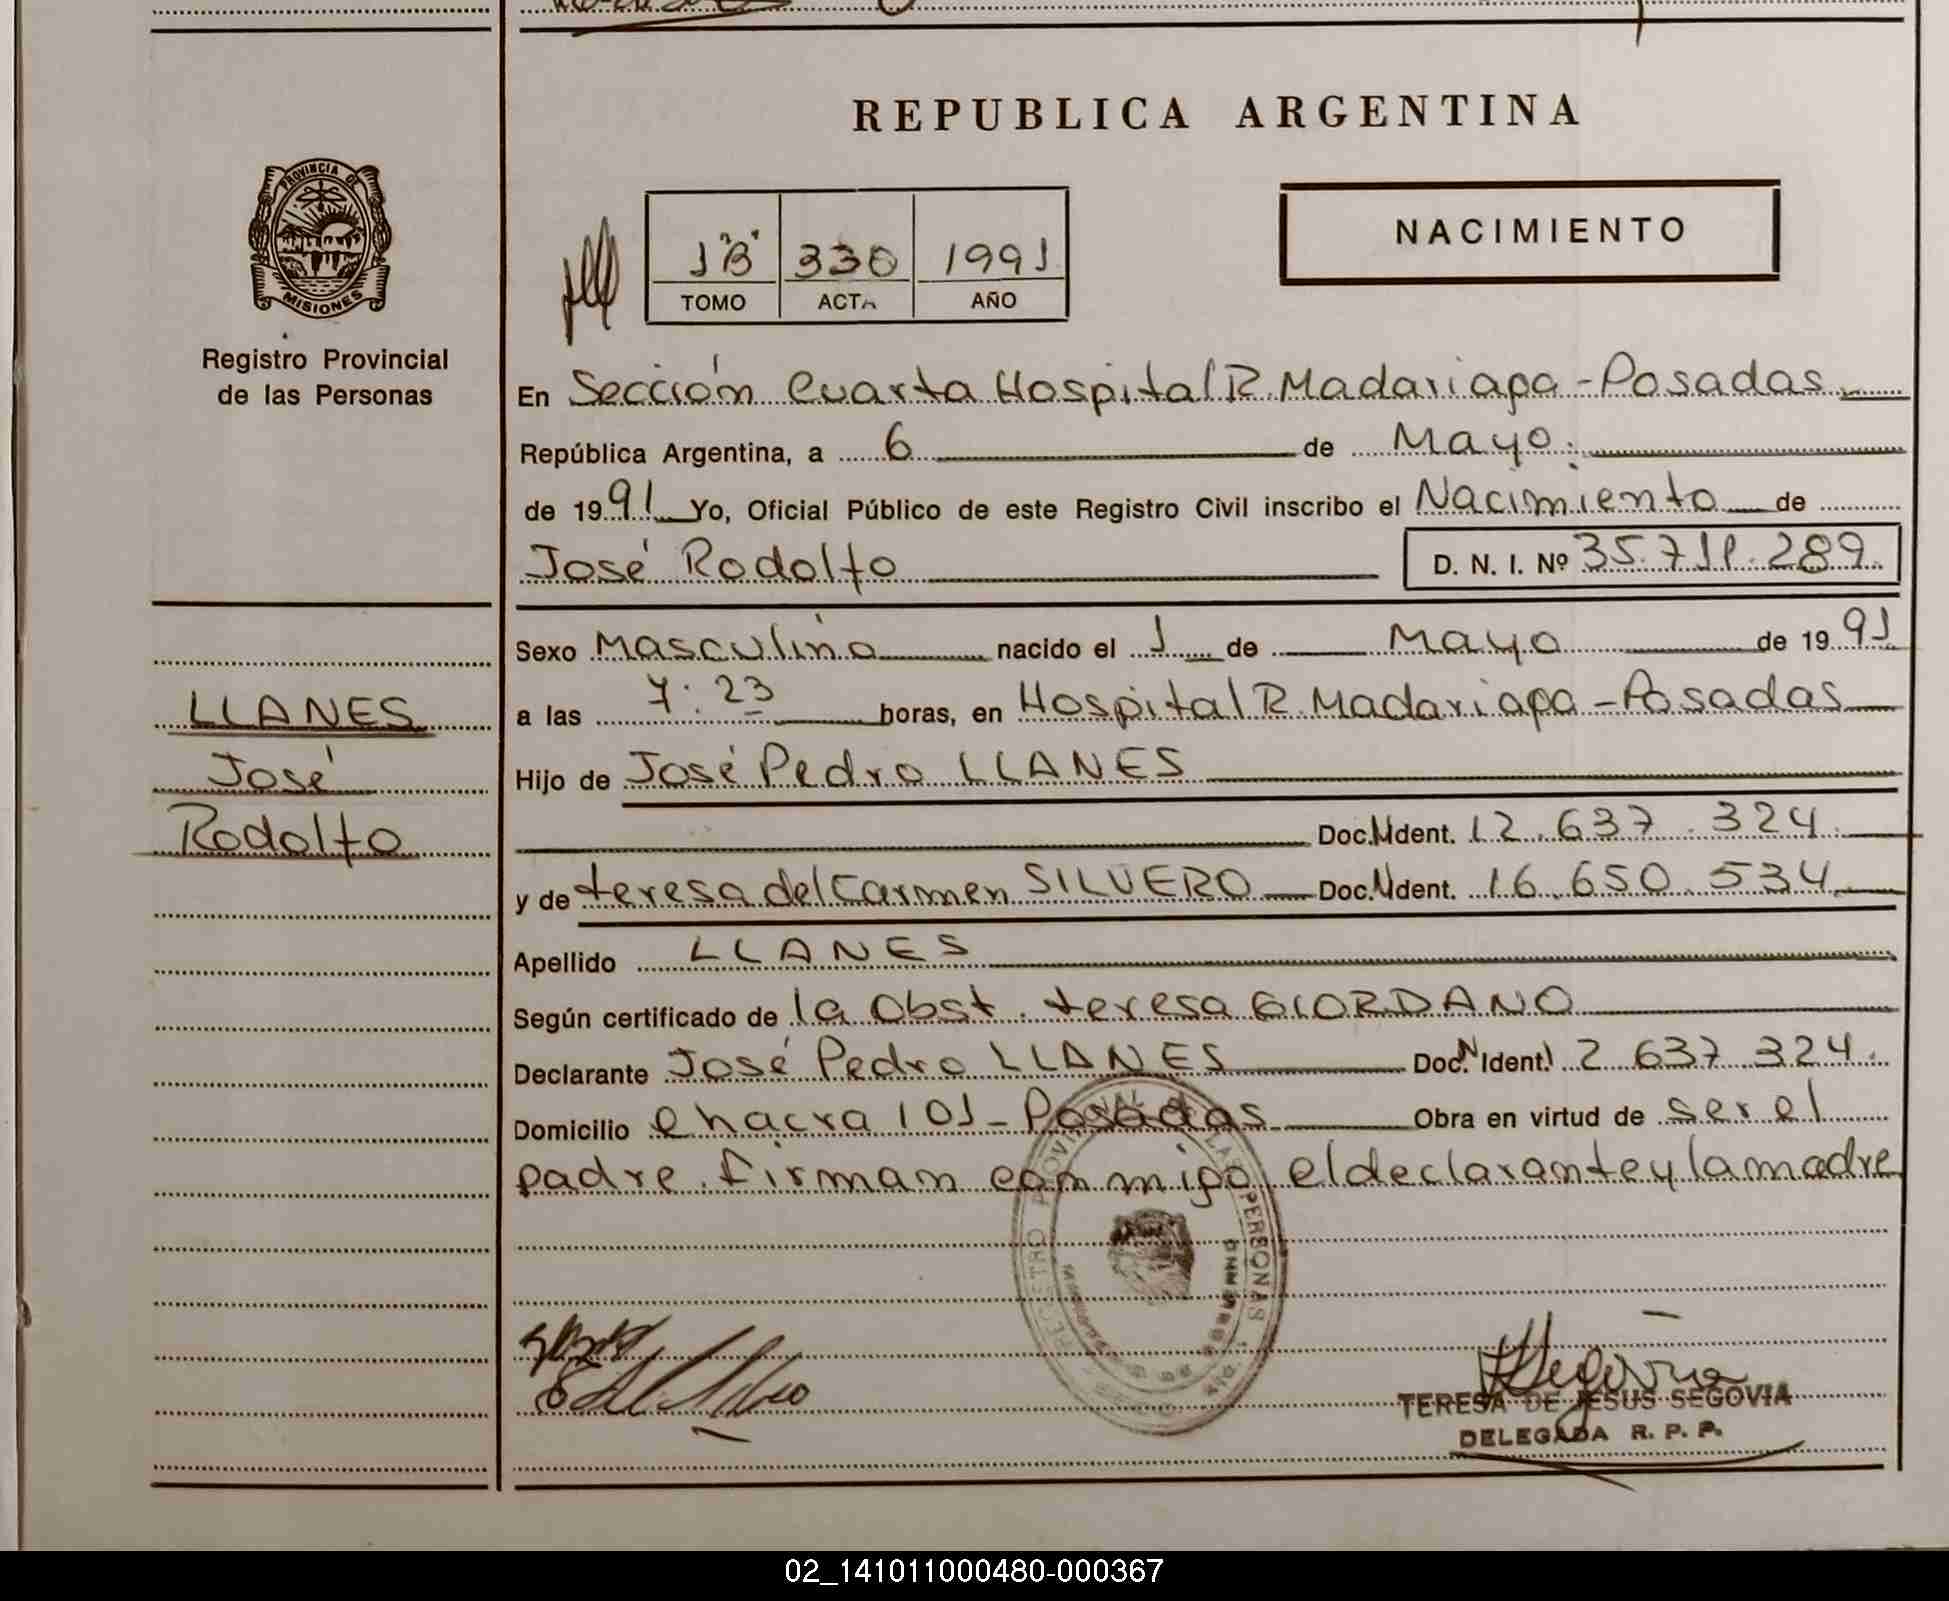 REPUBLICA ARGENTINA
PROVINCIA DE
MISIONES
Registro Provincial
de las Personas
1 "B" 330 1991
TOMO ACTA AÑO
NACIMIENTO
En Sección Cuarta Hospital R. Madariaga - Posadas
República Argentina, a 6 de Mayo
de 1991 Yo, Oficial Público de este Registro Civil inscribo el Nacimiento de
José Rodolfo D. N. I. Nº 289
LLANES
José
Rodolfo
Sexo Masculino nacido el 1 de Mayo de 1991
a las 7:23 horas, en Hospital R. Madariaga - Posadas
Hijo de José Pedro LLANES
Doc. N Ident. 12.637.324
y de teresa del Carmen SILVERO Doc. N Ident. 16.650.534
Apellido LLANES
Según certificado de la Obst. teresa GIORDANO
Declarante José Pedro LLANES Doc. N Ident. 12 637 324
Domicilio Chacra 101 - Posadas Obra en virtud de ser el
padre. firman conmigo, el declarante y la madre
REGISTRO PROVINCIAL DE LAS PERSONAS
TERESA DE JESUS SEGOVIA
DELEGADA R. P. P.
02_141011000480-000367